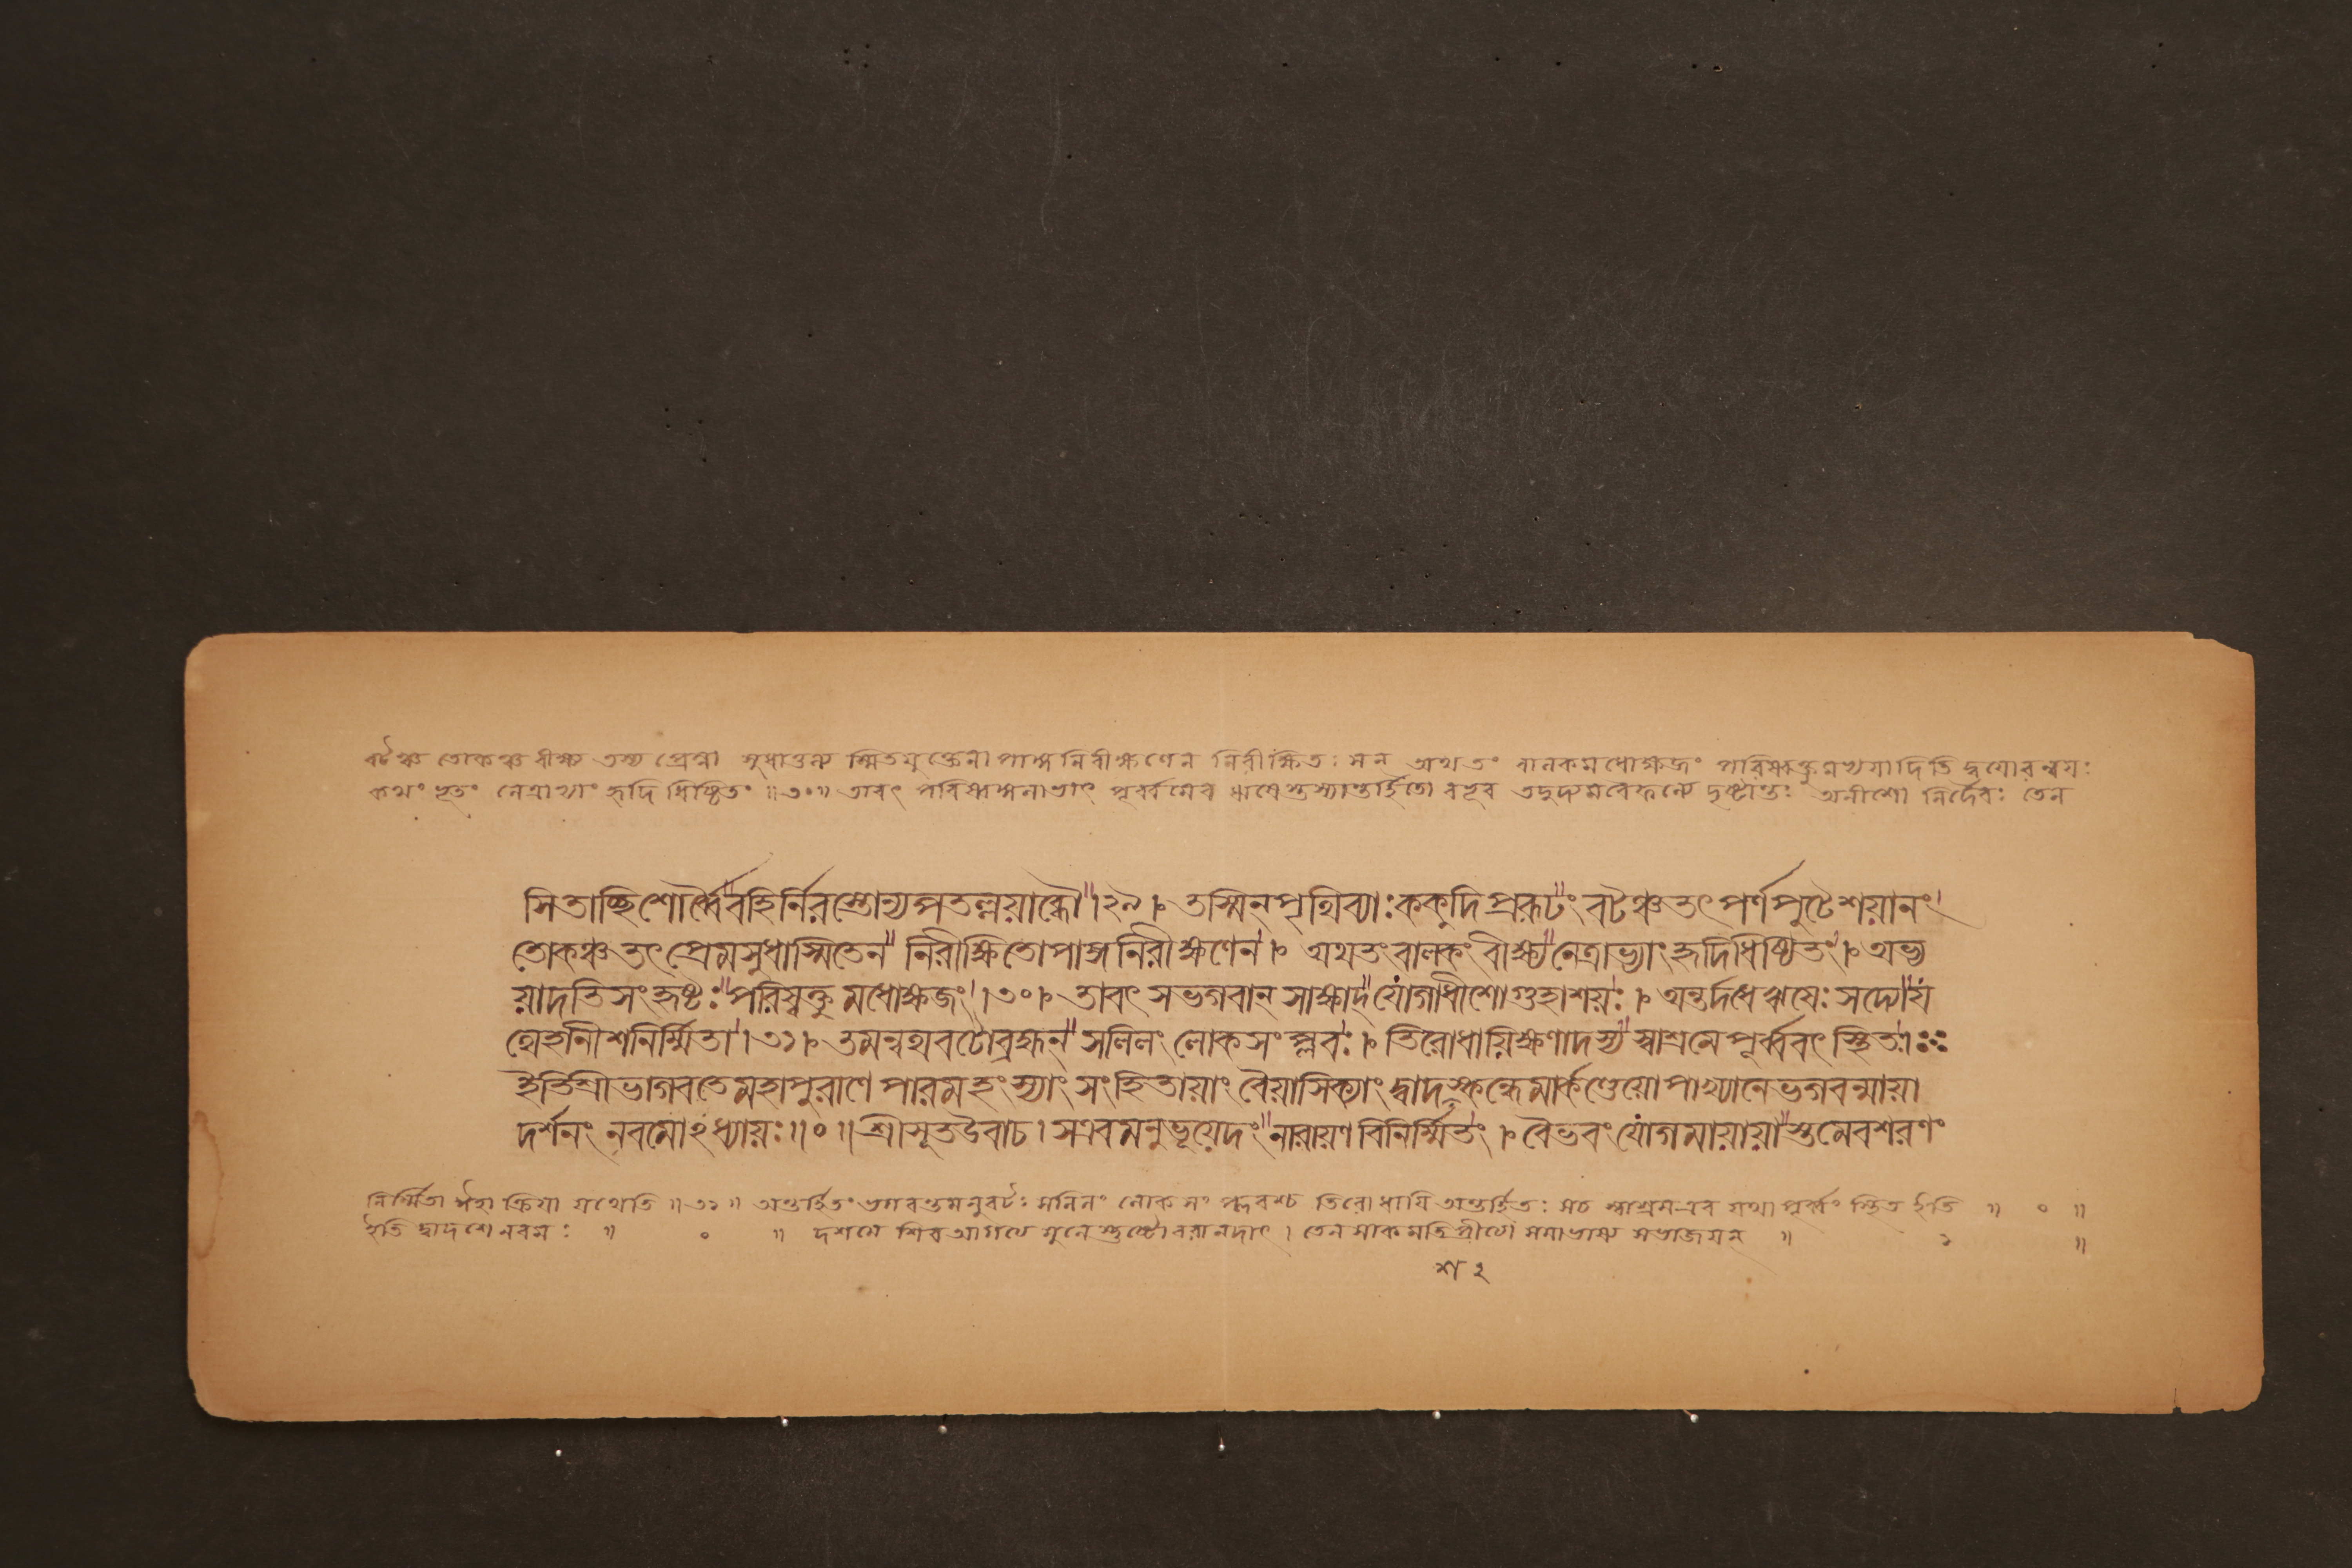 বটঞ্চ তোকঞ্চ বীক্ষ্য তস্য প্রেম্না সুধাতুল্য স্মিতযুক্তেনাপাঙ্গনিরীক্ষণেন নিরীক্ষিতঃ সন্ অথ তং বালকমধোক্ষজং পরিষ্বক্তুমভ্যয়াদিতি দ্বয়োরন্বয়ঃ
কথং ভূতং নেত্রাভ্যাং হৃদি ধিষ্ঠিতং ॥৩০॥ তাবৎ পরিষ্বঙ্গনাভাৎ পূর্ব্বমেব ঋষেস্তস্যান্তর্হিতো বভূব তদুদ্যমবৈফল্যে দৃষ্টান্তঃ অনীশো নির্দৈবঃ তেন
সিতাচ্ছিশোর্ব্বৈবহির্নিরস্তোন্যপতল্লয়াব্ধৌ।২৯। তস্মিন্ পৃথিব্যাঃ ককুদিপ্ররূঢং বটঞ্চতৎ পর্ণপুটে শয়ানং।
তোকঞ্চতৎ প্রেমসুধাস্মিতেন নিরীক্ষিতোপাঙ্গনিরীক্ষণেন। অথতং বালকং বীক্ষ্য নেত্রাভ্যাং হৃদিধিষ্ঠিতং। অভ্য
য়াদতিসংহৃষ্টঃ পরিষ্বক্তুমধোক্ষজং।৩০। তাবৎ সভগবান্ সাক্ষাদ্ যোগাধীশোগুহাশয়ঃ। অন্তর্দধে ঋষেঃ সদ্যো যং
থেহানীশনির্ম্মিতা।৩১। তমন্বথবটোব্রহ্মন্ সলিলং লোকসংপ্লবঃ। তিরোধায়িক্ষণাদস্য স্বাশ্রমে পূর্ব্ববৎ স্থিতঃ।
ইতিশ্রীভাগবতেমহাপুরাণে পারমহংস্যাং সংহিতায়াং বৈয়াসিক্যাং দ্বাদস্কন্ধেমার্কণ্ডেয়োপাখ্যানেভগবন্মায়া
দর্শনং নবমোঽধ্যায়ঃ॥০॥ শ্রীসূতউবাচ। সএবমনুভূয়েদং নারায়ণবিনির্ম্মিতং। বৈভবং যোগমায়ায়াস্তমেবশরণং
নির্ম্মিতা ঈহা ক্রিয়া যথেতি ॥৩১॥ অন্তর্হিতং ভগবন্তমনুবটঃ সলিলং লোকসংপ্লবশ্চ তিরোধায়ি অন্তর্হিতঃ সচ স্বাশ্রমএব যথা পূর্ব্বং স্থিত ইতি ॥ ০ ॥
ইতি দ্বাদশে নবমঃ ॥ ০ ॥ দশমে শিব আগত্য মুনেস্তুষ্টোবরানদাৎ।